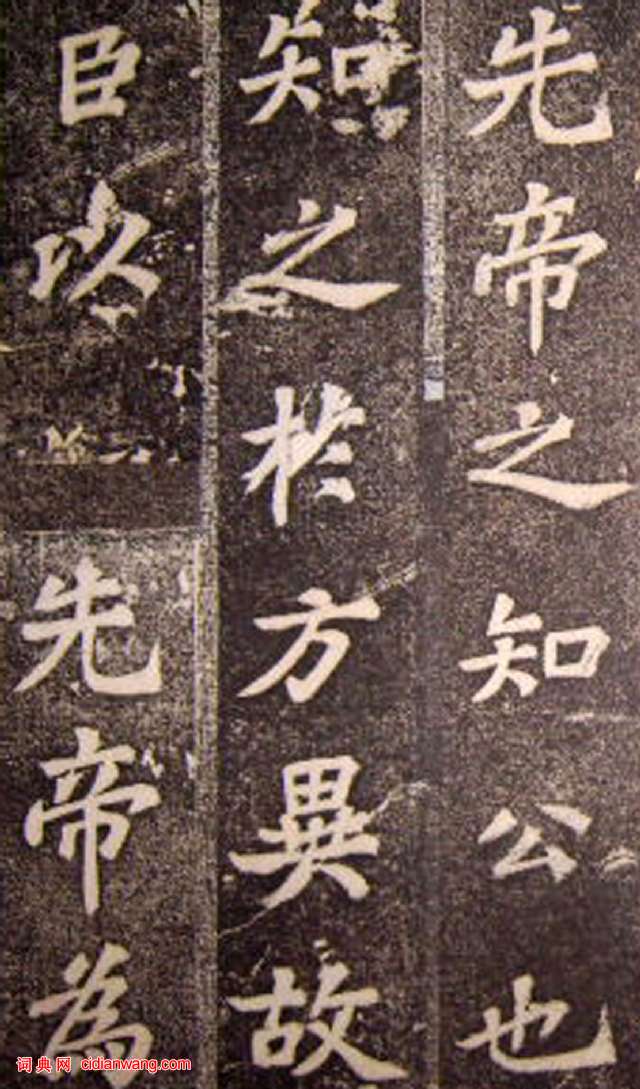 先帝之知公也
知之於方異故
臣以先帝為
词典网 cidianwang.com